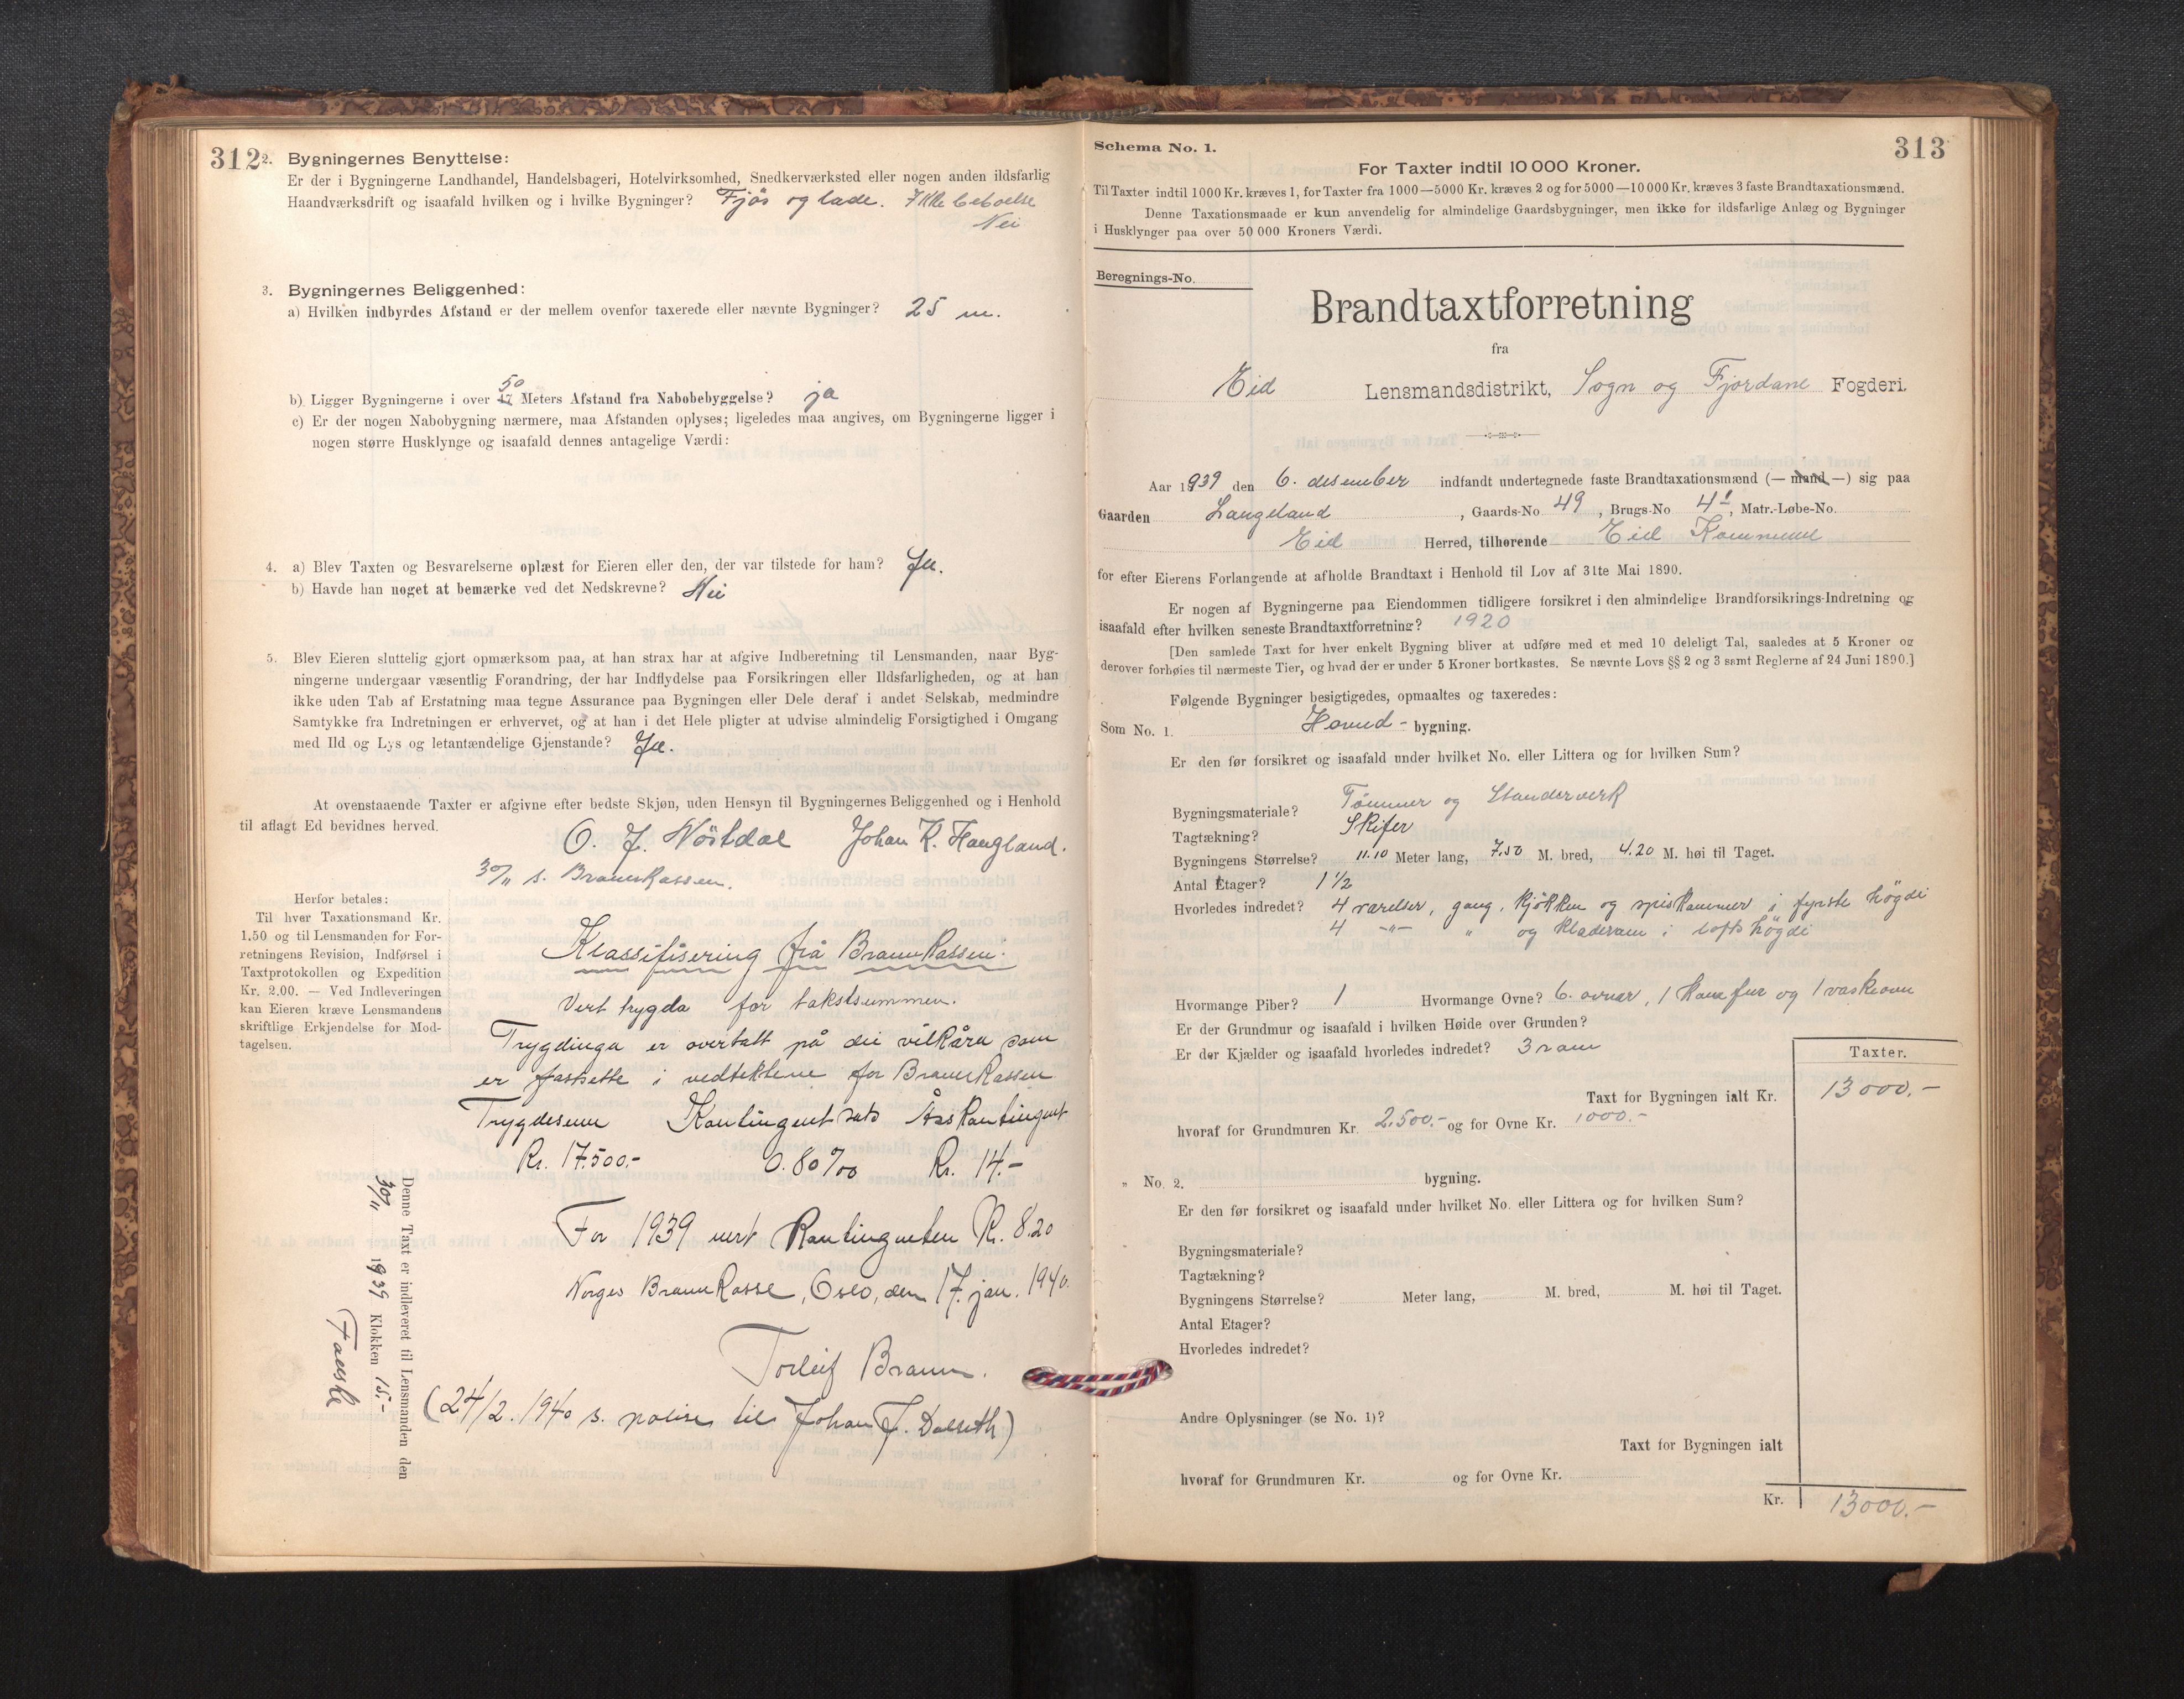 312
2. Bygningernes Benyttelse:
Er der i Bygningerne Landhandel, Handelsbageri, Hotelvirksomhed, Snedkerværksted eller nogen anden ildsfarlig
Haandværksdrift og isaafald hvilken og i hvilke Bygninger? Fjös og lade. Ikke beboelse
Nei
3. Bygningernes Beliggenhed:
a) Hvilken indbyrdes Afstand er der mellem ovenfor taxerede eller nævnte Bygninger? 25 m.
50
b) Ligger Bygningerne i over Meters Afstand fra Nabobebyggelse? ja
c) Er der nogen Nabobygning nærmere, maa Afstanden oplyses; ligeledes maa angives, om Bygningerne ligger i
nogen større Husklynge og isaafald dennes antagelige Værdi:
4. a) Blev Taxten og Besvarelserne oplæst for Eieren eller den, der var tilstede for ham? Ja.
b) Havde han noget at bemærke ved det Nedskrevne? Nei
5. Blev Eieren sluttelig gjort opmærksom paa, at han strax har at afgive Indberetning til Lensmanden, naar Byg-
ningerne undergaar væsentlig Forandring, der har Indflydelse paa Forsikringen eller Ildsfarligheden, og at han
ikke uden Tab af Erstatning maa tegne Assurance paa Bygningen eller Dele deraf i andet Selskab, medmindre
Samtykke fra Indretningen er erhvervet, og at han i det Hele pligter at udvise almindelig Forsigtighed i Omgang
med Ild og Lys og letantændelige Gjenstande? Ja.
At ovenstaaende Taxter er afgivne efter bedste Skjøn, uden Hensyn til Bygningernes Beliggenhed og i Henhold
til aflagt Ed bevidnes herved.
O. J. Nöstdal Johan K. Haugland.
30/11 s. Brannkassen.
Herfor betales:
Til hver Taxationsmand Kr.
1.50 og til Lensmanden for For-
retningens Revision, Indførsel i
Taxtprotokollen og Expedition
Kr. 2.00. — Ved Indleveringen
kan Eieren kræve Lensmandens
skriftlige Erkjendelse for Mod-
tagelsen.
Klassifisering frå Brannkassen.
Vert trygda for takstsummen.
Trygdinga er overtatt på dei vilkåra som
er fastsette i vedtektene for Brannkassen
Trygdesum Kontingentsats Årskontingent
Kr. 17.500.- 0.80 ‰ Kr. 14.-
For 1939 vert Kontingenten Kr. 8.20
Norges Brannkasse, Oslo, den 17. jan. 1940.
Torleif Bramm.
(24/2. 1940 s. polise til Johan J. Dalseth)
Denne Taxt er indleveret til Lensmanden den
30/11 1939 Klokken 15.-
313
Schema No. 1.
For Taxter indtil 10 000 Kroner.
Til Taxter indtil 1000 Kr. kræves 1, for Taxter fra 1000—5000 Kr. kræves 2 og for 5000—10 000 Kr. kræves 3 faste Brandtaxationsmænd.
Denne Taxationsmaade er kun anvendelig for almindelige Gaardsbygninger, men ikke for ildsfarlige Anlæg og Bygninger
i Husklynger paa over 50 000 Kroners Værdi.
Beregnings-No.
Brandtaxtforretning
fra
Eid Lensmandsdistrikt, Sogn og Fjordane Fogderi.
Aar 1939 den 6. desember indfandt undertegnede faste Brandtaxationsmænd (— mand —) sig paa
Gaarden Langeland, Gaards-No. 49, Brugs-No. 4, Matr.-Løbe-No.
Eid Herred, tilhørende Eid Kommune
for efter Eierens Forlangende at afholde Brandtaxt i Henhold til Lov af 31te Mai 1890.
Er nogen af Bygningerne paa Eiendommen tidligere forsikret i den almindelige Brandforsikrings-Indretning og
isaafald efter hvilken seneste Brandtaxtforretning? 1920
[Den samlede Taxt for hver enkelt Bygning bliver at udføre med et med 10 deleligt Tal, saaledes at 5 Kroner og
derover forhøies til nærmeste Tier, og hvad der er under 5 Kroner bortkastes. Se nævnte Lovs §§ 2 og 3 samt Reglerne af 24 Juni 1890.]
Følgende Bygninger besigtigedes, opmaaltes og taxeredes:
Som No. 1. Hovud-bygning.
Er den før forsikret og isaafald under hvilket No. eller Littera og for hvilken Sum?
Bygningsmateriale? Tömmer og Standerverk
Tagtækning? Skifer
Bygningens Størrelse? 11.10 Meter lang, 7.50 M. bred, 4.20 M. høi til Taget.
Antal Etager? 1 1/2
Hvorledes indredet? 4 værelser, gang, kjökken og spiskammer i fyrste högdi
4 -"- " og kladerom i lofts högdi
Hvormange Piber? 1 Hvormange Ovne? 6. ovnar, 1 Komfur og 1 vaskeovn
Er der Grundmur og isaafald i hvilken Høide over Grunden?
Er der Kjælder og isaafald hvorledes indredet? 3 rom
Taxter.
Taxt for Bygningen ialt Kr. 13000.-
hvoraf for Grundmuren Kr. 2.500.- og for Ovne Kr. 1000.-
" No. 2. bygning.
Er den før forsikret og isaafald under hvilket No. eller Littera og for hvilken Sum?
Bygningsmateriale?
Tagtækning?
Bygningens Størrelse? Meter lang, M. bred, M. høi til Taget.
Antal Etager?
Hvorledes indredet?
Andre Oplysninger (se No. 1)?
Taxt for Bygningen ialt
hvoraf for Grundmuren Kr. og for Ovne Kr.
Kr. 13000.-